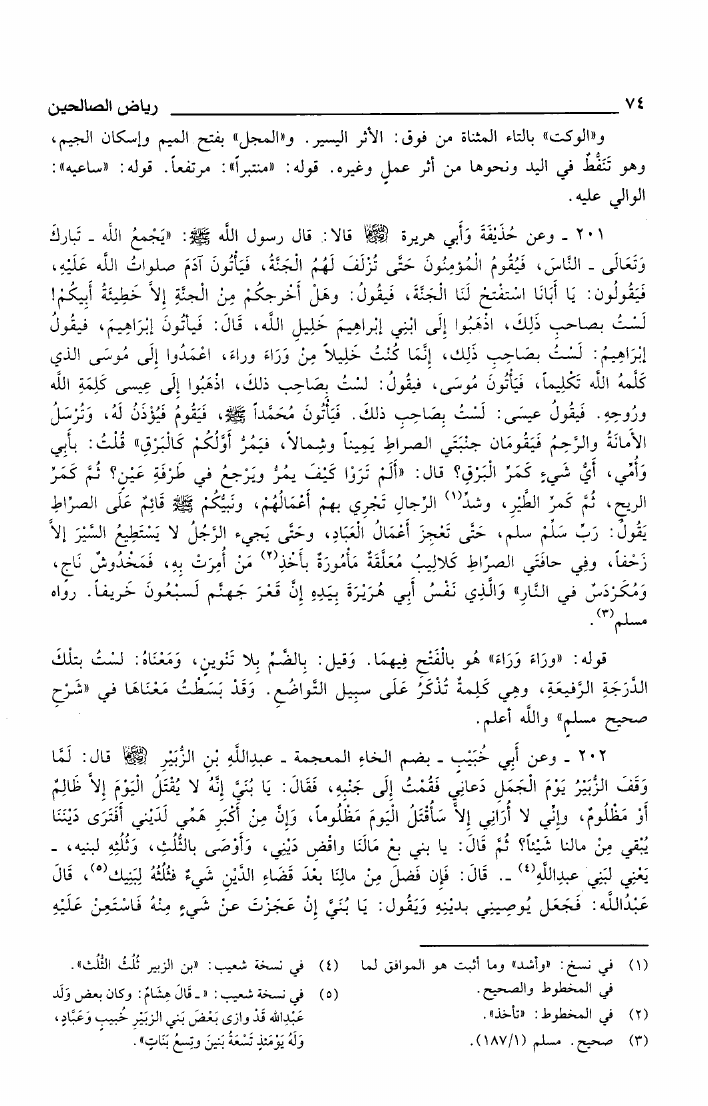 ٧٤ رياض الصالحين
و«الوكت» بالتاء المثناة من فوق: الأثر اليسير. و«المجل» بفتح الميم وإسكان الجيم،
وهو تَنَفُّطٌ في اليد ونحوها من أثر عملٍ وغيره. قوله: «منتبراً»: مرتفعاً. قوله: «ساعيه»:
الوالي عليه.
٢٠١ ـ وعن حُذَيْفَةَ وَأبي هريرة ﵄ قالا: قال رسول الله ﷺ: «يَجْمعُ الله ـ تَبَاركَ
وَتَعَالَى ـ النَّاسَ، فَيُقُومُ الْمُؤمِنُونَ حَتَّى تُزْلَفَ لَهُمُ الْجَنَّةُ، فَيَأتُونَ آدَمَ صلواتُ الله عَلَيْهِ،
فَيَقُولُون: يَا أَبَانَا اسْتفْتحْ لَنَا الْجَنَّةَ، فَيقُولُ: وهَلْ أَخْرجكُمْ مِنْ الْجنَّةِ إِلاَّ خَطِيئَةُ أَبِيكُمْ!
لَسْتُ بصاحبِ ذَلِكَ، اذْهَبُوا إِلَى ابْنِي إبْراهِيمَ خَلِيلِ الله، قَالَ: فَيأتُونَ إبْرَاهِيمَ، فيقُولُ
إبْرَاهِيمُ: لَسْتُ بصَاحبِ ذَلِك، إِنَّمَا كُنْتُ خَلِيلاً مِنْ وَرَاءَ وراءَ، اعْمَدُوا إِلَى مُوسَى الذي
كَلَّمهُ الله تَكْلِيماً، فَيَأتُونَ مُوسَى، فيقُولُ: لسْتُ بِصَاحِب ذلكَ، اذهَبُوا إِلَى عِيسى كَلِمَةِ الله
ورُوحِهِ. فَيقُولُ عيسَى: لَسْتُ بِصَاحبِ ذلكَ. فَيَأتُونَ مُحَمَّداً ﷺ، فَيَقُومُ فَيُؤذَنُ لَهُ، وَتُرْسَلُ
الأَمَانَةُ والرَّحِمُ فَيَقُومَان جنْبَتَي الصراطِ يَمِيناً وشِمالاً، فيَمُرُّ أَوَّلُكُمْ كَالْبَرْقِ» قُلْتُ: بأَبِي
وَأُمِّي، أَيُّ شَيءٍ كَمَرِّ الْبَرْقِ؟ قال: «أَلَمْ تَرَوْا كَيْفَ يمُرُّ ويَرْجعُ في طَرْفَةِ عَيْنٍ؟ ثُمَّ كَمَرِّ
الريحِ، ثُمَّ كَمرِّ الطَّيْرِ، وشدِّ(١) الرِّجالِ تَجْري بهمْ أَعْمَالُهُمْ، ونَبيُّكُمْ ﷺ قَائِمٌ عَلَى الصرِّاطِ
يَقُولُ: رَبِّ سَلِّمْ سلم، حَتَّى تَعْجِزَ أَعْمَالُ الْعَبَادِ، وحَتَّى يَجيء الرَّجُلُ لا يَسْتَطِيعُ السَّيْرَ إلاَّ
زَحْفاً، وفي حافَتَي الصرِّاطِ كَلالِيبُ مُعَلَّقَةٌ مَأمُورَةٌ بأَخْذِ(٢) مَنْ أُمِرَتْ بِهِ، فَمَخْدُوشٌ نَاجٍ،
وَمُكَرْدَسٌ في النَّارِ» وَالَّذِي نَفْسُ أَبِي هُرَيْرَةَ بِيَدِهِ إِنَّ قَعْرَ جَهنَّم لَسبْعُونَ خَريفاً. رواه
مسلم(٣).
قوله: «ورَاءَ وَرَاءَ» هُو بالْفَتْحِ فِيهمَا. وَقيل: بِالضَّمِّ بِلا تَنْوينٍ، وَمَعْنَاهُ: لسْتُ بتلْكَ
الدَّرَجَةِ الرَّفيعَةِ، وهي كَلِمةٌ تُذْكَرُ عَلَى سبِيل التَّواضُعِ. وَقَدْ بَسَطْتُ مَعْنَاهَا في «شَرْحِ
صحيح مسلمٍ» والله أعلم.
٢٠٢ ـ وعن أَبي خُبَيْبٍ ـ بضم الخاءِ المعجمة ـ عبدِاللَّهِ بْنِ الزُّبَيْرِ ﵄ قال: لَمَّا
وَقَفَ الزُّبَيْرُ يَوْمَ الْجَمَلِ دَعانِي فَقُمْتُ إِلَى جَنْبِهِ، فَقَالَ: يَا بُنَيَّ إِنَّهُ لا يُقْتَلُ الْيَوْمَ إِلاَّ ظَالِمٌ
أَوْ مَظْلُومٌ، وإِنِّي لا أُرَانِي إِلاَّ سَأُقْتَلُ الْيومَ مَظْلُوماً، وَإِنَّ مِنْ أَكْبَرِ هَمِّي لَدَيْنِي أَفتَرَى دَيْنَنَا
يُبْقي مِنْ مالنا شَيْئاً؟ ثُمَّ قَالَ: يا بني بعْ مَالَنَا واقْضِ دَيْنِي، وَأَوْصَى بالثُّلُثِ، وَثُلُثِهِ لبنيه، ـ
يَعْنِي لبَنِي عبدِاللَّهِ(٤) ـ. قَالَ: فَإِن فَضلَ مِنْ مالِنَا بعْدَ قَضَاءِ الدَّيْنِ شَيءٌ فثُلُثُهُ لِبَنِيك(٥)، قَالَ
عَبْدُاللَّهِ: فَجَعَل يُوصِينِي بديْنِهِ وَيَقُول: يَا بُنَيَّ إِنْ عَجَزْتَ عنْ شَيءٍ مِنْهُ فَاسْتَعِنْ عَلَيْهِ
(١) في نسخ: «وأشد» وما أثبت هو الموافق لما
في المخطوط والصحيح.
(٢) في المخطوط: «تأخذ».
(٣) صحيح. مسلم (١/١٨٧).
(٤) في نسخة شعيب: «بن الزبير ثُلُثُ الثُّلُث».
(٥) في نسخة شعيب: «ـ قَالَ هِشَامٌ: وكان بعض وَلَد
عَبْدِالله قَدْ وازى بَعْضَ بَني الزبَيْرِ خُبيبٍ وَعَبَّادٍ،
وَلَهُ يَوْمَئذٍ تَسْعَةُ بَنينَ وتِسعُ بَنَاتٍ».